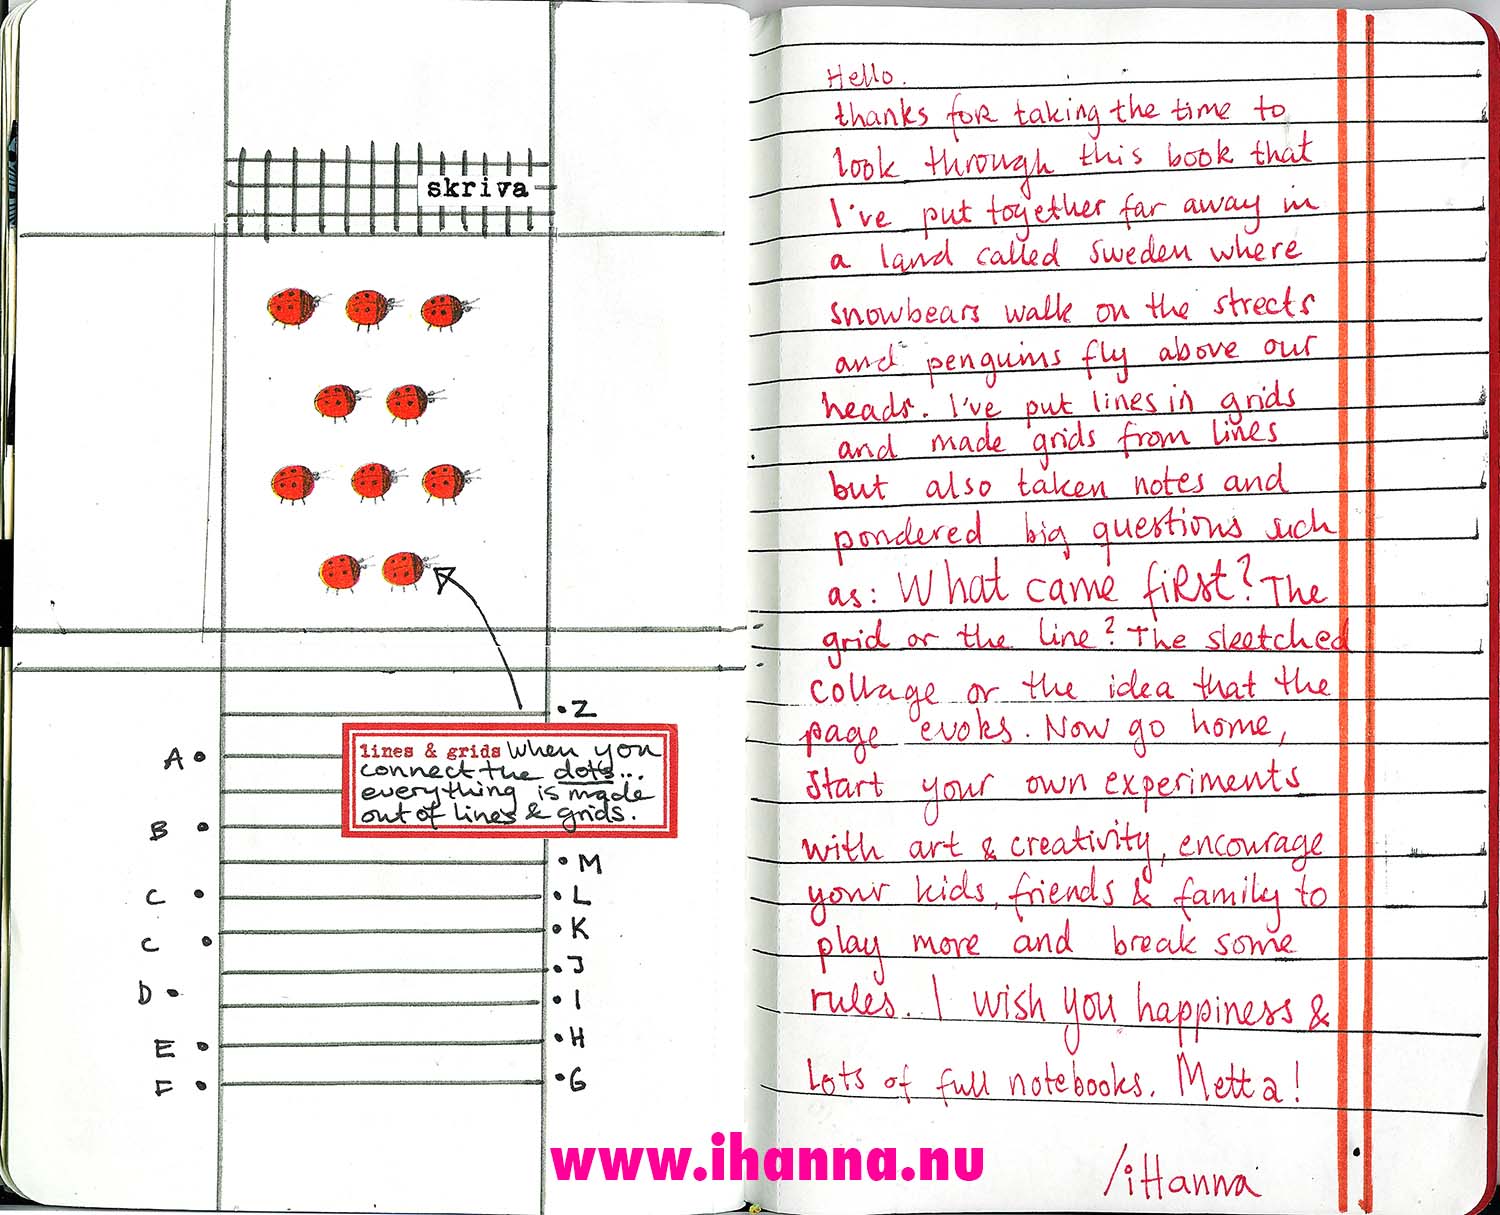 skriva
•Z
A•
lines & grids When you
connect the dots...
everything is made
out of lines & grids.
B •
•M
C •
•L
•K
C •
•J
D •
•I
E •
•H
F •
•G
Hello.
thanks for taking the time to
look through this book that
I've put together far away in
a land called Sweden where
snowbears walk on the streets
and penguins fly above our
heads. I've put lines in grids
and made grids from lines
but also taken notes and
pondered big questions such
as: What came first? The
grid or the line? The sketched
collage or the idea that the
page evoks. Now go home,
start your own experiments
with art & creativity, encourage
your kids, friends & family to
play more and break some
rules. I wish you happiness &
lots of full notebooks. Metta!
/iHanna
www.ihanna.nu